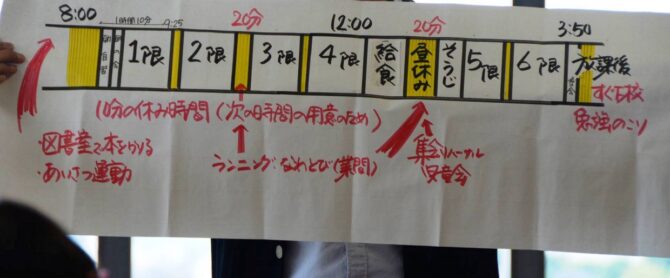 8:00
1時間10分
9:25
20分
12:00
20分
3:50
朝の会
1限
2限
3限
4限
給食
昼休み
そうじ
5限
6限
放課後
10分の休み時間(次の時間の用意のため)
すぐ下校
勉強のこり
・図書室で本をかりる
・あいさつ運動
ランニング・なわとび(業間)
集会リハーサル
児童会